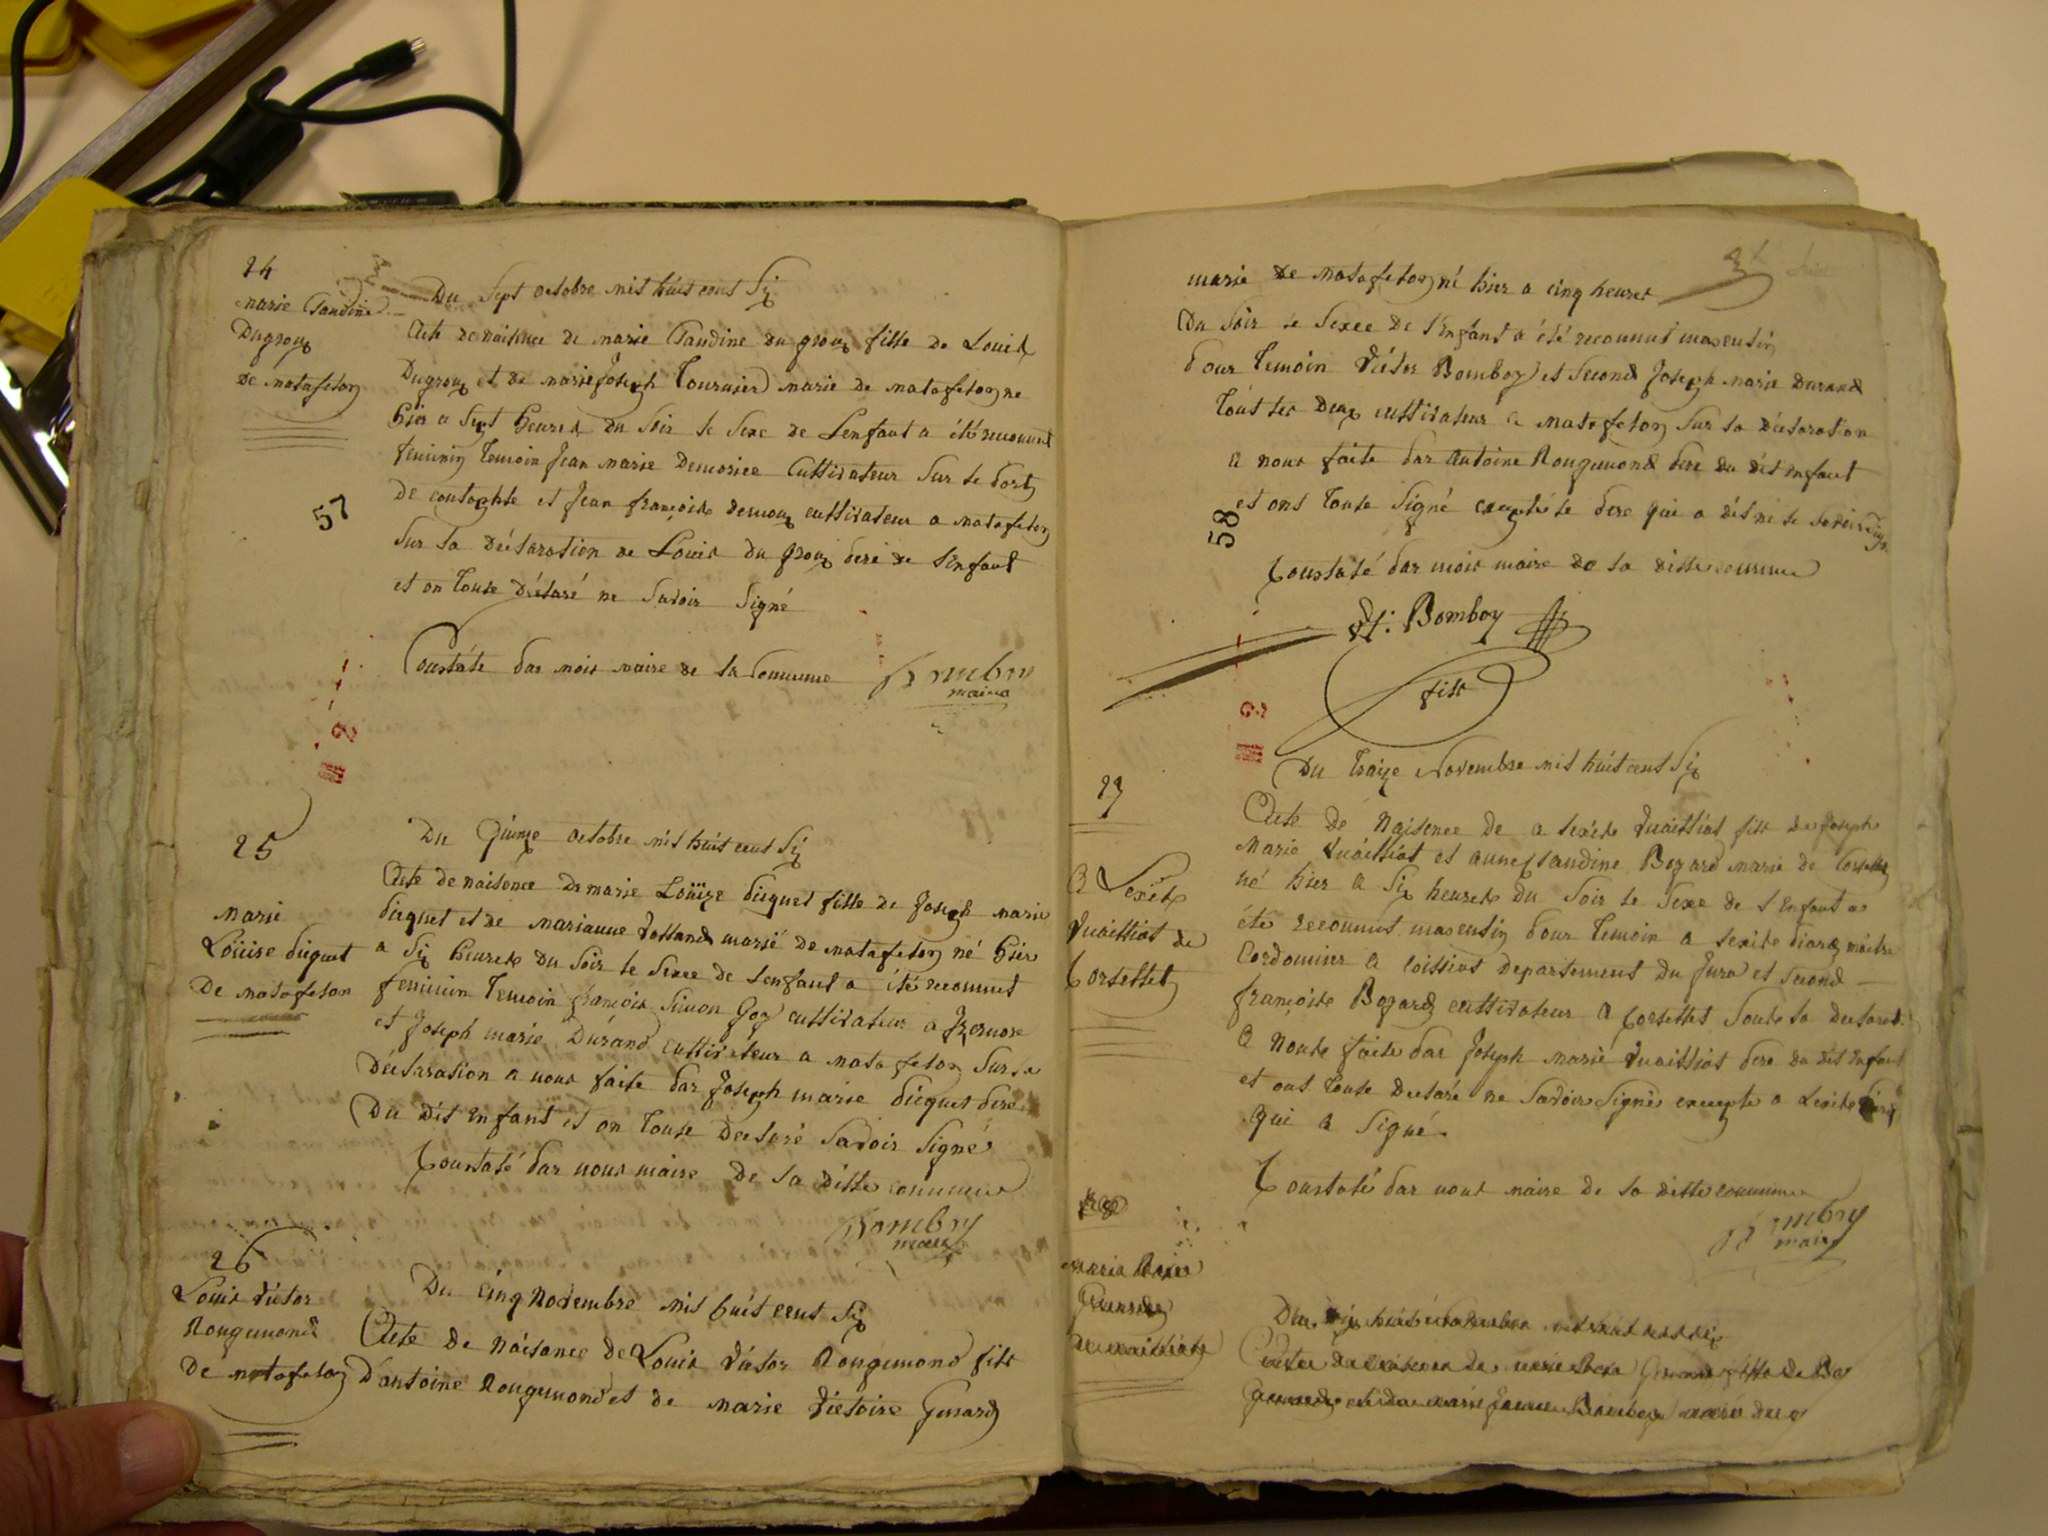 24
marie Claudine
Dugroux
de matafelon
Du Sept octobre mil huit cent Six
Acte de naissance de marie Claudine du groux fille de Louis
Dugroux et de marie Joseph Tournier marié de matafelon né
hier a Sept heures du Soir le Sexe de Lenfant a été reconnut
feminin temoin Jean marie Demorice Cultivateur Sur le Port
57
De et Jean françois demoux cultivateur a matafelon
Sur la déclaration de Louis du groux pere de Lenfant
et on tous déclaré ne Savoir Signé
Constaté par moit maire de la Commune
Bomboy
maire
25
marie
Loüise piquet
De matafelon
Du Quinze octobre mil huit cent Six
Acte de naisence de marie Loüize piquet fille de Joseph marie
piquet et de marianne Volland marié de matafelon né hier
a Six heures du Soir le Sexce de Lenfant a été reconnut
feminin temoin françois Simon Goy cultivateur a Izernore
et Joseph marie Durand cultivateur a matafelon Sur la
Déclaration a nous faite par Joseph marie piquet pere
Du dit Enfant et on tous declaré Savoir Signé
Constaté par nous maire de la ditte commune
Bomboy
maire
26
Louis Victor
Rougemond
De matafelon
Du Cinq Novembre mil huit cent Six
Acte de Naisance de Louis Victor Rougemond fils
D'antoine Rougemond et de marie Victoire Girard
marié de Matafelon né hier a cinq heures
Du Soir le Sexce de l'Enfant a été reconnut masculin
Pour temoin Victor Bomboy et Second Joseph marie Durand
tout les Deux cultivateur a matafelon Sur la déclaration
a nous faite par antoine Rougemond Pere du dit enfant
et ont touts Signé excepté le Pere qui a dit ne le Savoir
58
Constaté par moit maire de la ditte commune
Vt: Bomboy
fils
27
Du traize Novembre mil huit cent Six
A Lexcis
Vuaillat de
Corsellet
Acte de Naisence de a lexcis Vuaillat fils de Joseph
Marie Vuaillat et anneclaudine Bozard marié de Corsellet
né hier a Six heures du Soir le Sexe de l Enfant a
été reconnut masculin pour temoin a lexcis piard maitre
Cordonnier a Loissiat departement du Jura et Second
françois Bozard cultivateur a Corsellet Sous la declarat.
a Nous faite par Joseph marie Vuaillat pere du dit Enfant
et ont touts declaré ne Savoir Signé excepté a Lexcis piard
qui a Signé.
Constaté par nous maire de la ditte commune
Bomboy
maire
28